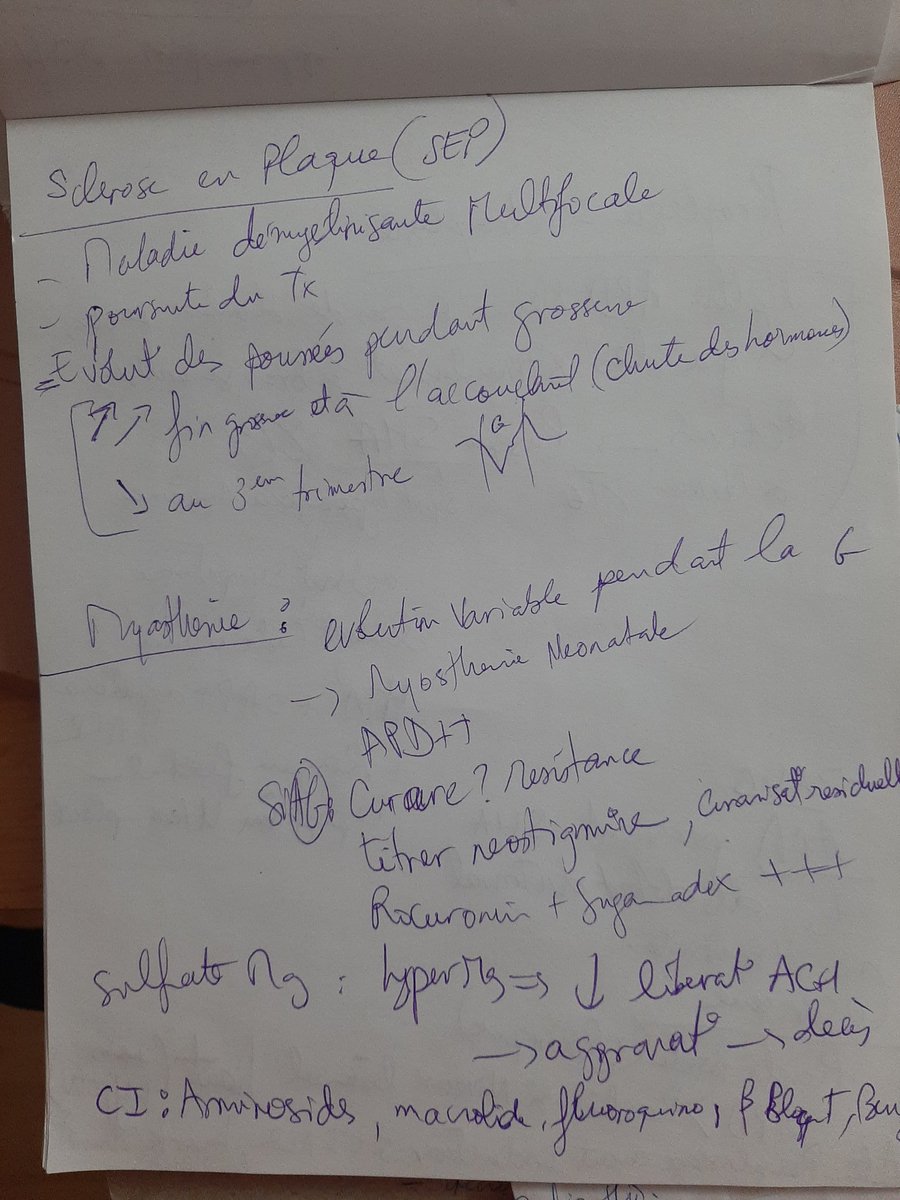 Sclerose en Plaque (SEP)
- Maladie démyelinisante Multifocale
- poursuite du Tx
= Evolut° des poussées pendant grossesse
↗↗ fin grosse et à l'accouchmt (chute des hormones)
G
↘ au 3em trimestre
Myasthenie : evolution variable pendant la G
-> Myosthenie Neonatale
APD++
Si AG: Curare? resistance
titrer neostigmine, curarisat° residuell
Rocuronim + Sugamadex +++
Sulfate Mg : hyperMg => ↓ liberat° ACH
-> aggravat° -> decès
CI : Aminosides, macrolide, fluoroquino, β Bloqt, Ben